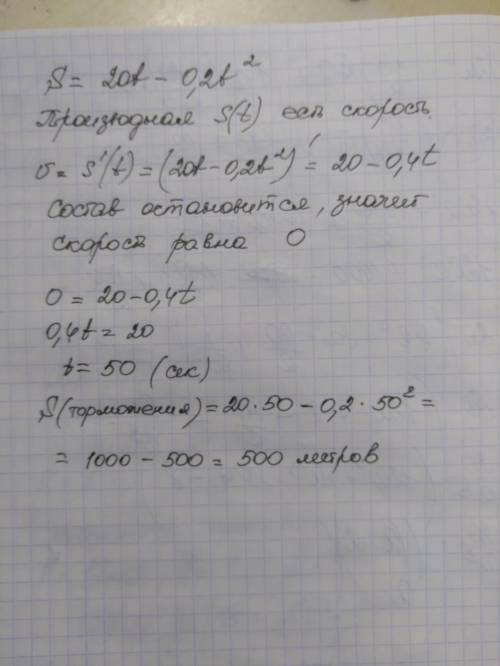 S = 20t - 0,2t²
Производная S(t) есть скорость.
v = s'(t) = (20t - 0,2t²)' = 20 - 0,4t
Состав остановится, значит
скорость равна 0
0 = 20 - 0,4t
0,4t = 20
t = 50 (сек)
S(торможения) = 20·50 - 0,2·50² =
= 1000 - 500 = 500 метров